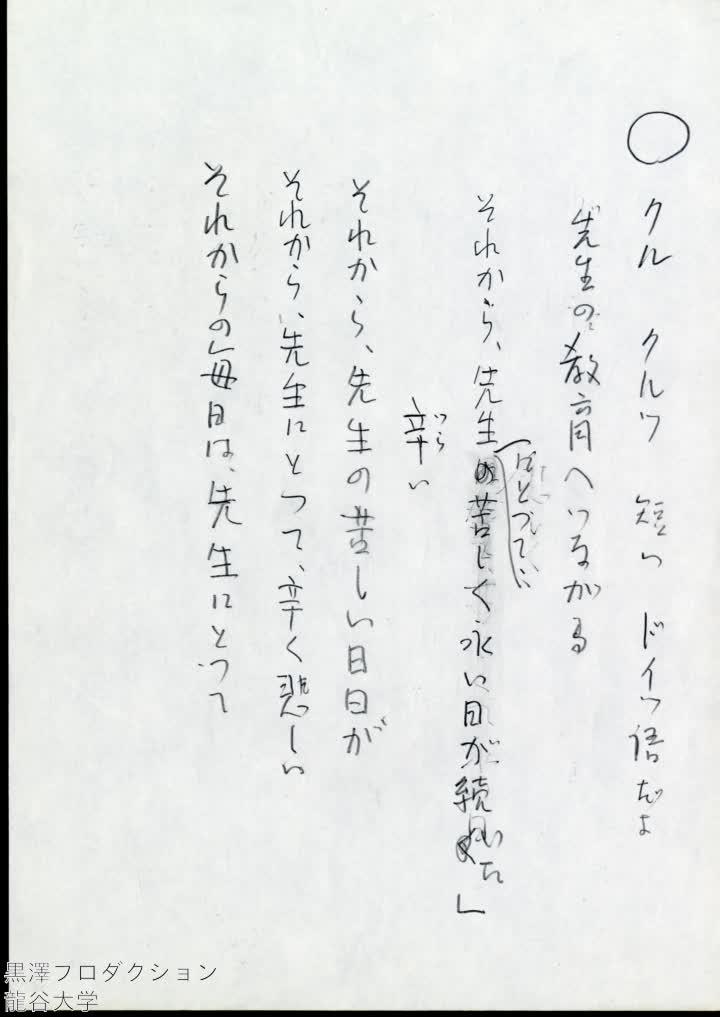 ○ クル クルツ 短い ドイツ語だよ
先生の教育へつながる
それから、先生の苦しく永い日が続いた」
にとって
つら
辛い
それから、先生の苦しい日日が
それから、先生にとつて、辛く悲しい
それからの毎日は、先生にとつて
黒澤プロダクション
龍谷大学